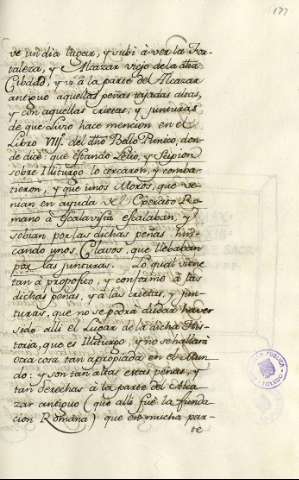 177
ve un dia lugar, y subi à ver la For-
taleza, y Alcazar viejo de la dha
Ciudad, y vi à la parte del Alcazar
antiguo aquellas peñas tajadas altas,
y con aquellas crietas, y junturas
de que Livio hace mencion en el
libro VIII. del dho Bello Punico, don-
de dice que estando Lelio, y Scipion
sobre Iliturgo lo cercaron, y comba-
tieron, y que unos Moros, que ve-
nian en ayuda del Exercito Ro-
mano à escalavista escalaban, y
subian por las dichas peñas hin-
cando unos Clavos, que llebaban
por las junturas. Lo qual viene
tan à proposito, y conforme à las
dichas peñas, y à las crietas, y jun-
turas, que no se podrà dudar haver
sido alli el Lugar de la dicha His-
toria, que es Iliturgo, y no se hallarà
otra cosa tan apropiada en el Mun-
do: y son tan altas estas peñas, y
tan derechas à la parte del Alca-
zar antiguo (que alli fue la funda-
cion Romana) que en mucha par-
te